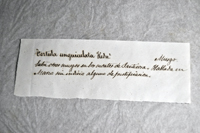 Tortula unguiculata Hedw. Musgo.
Sobre otros musgos en los montes de Santivera. Hallada en
Marzo sin indicio alguno de fructificacion.